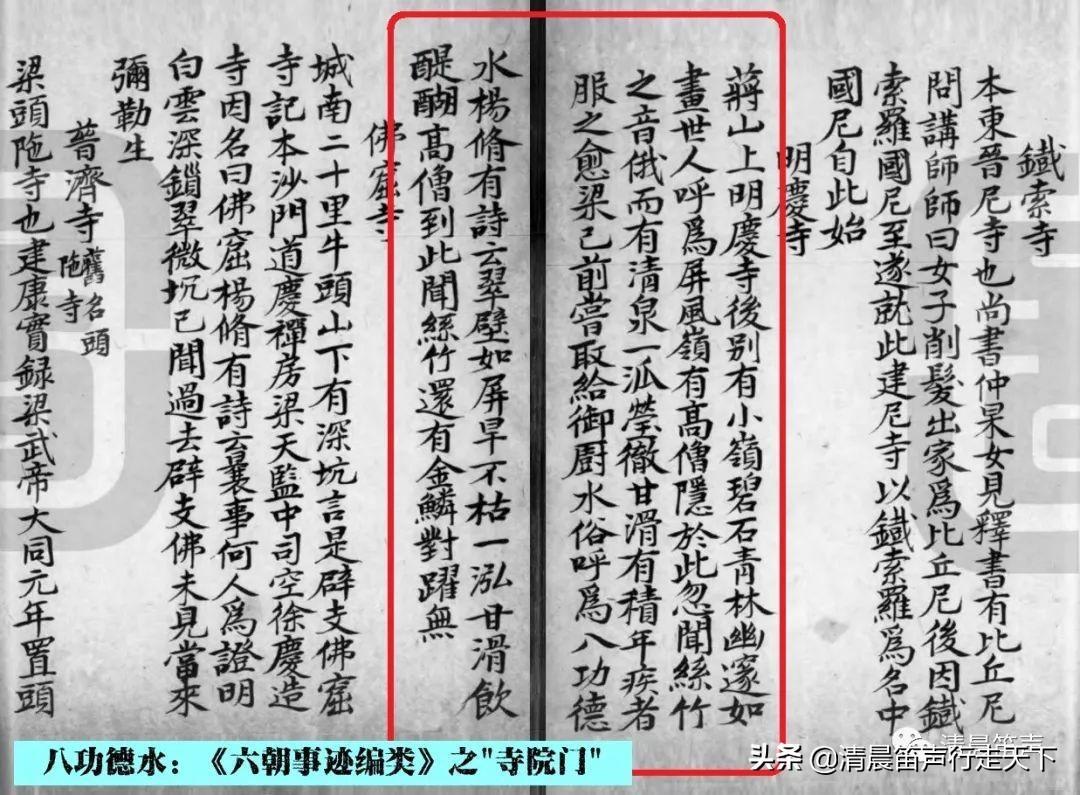 鐵索寺
本東晉尼寺也尚書仲杲女見釋書有比丘尼
問講師師曰女子削髮出家爲比丘尼後因鐵
索羅國尼至遂就此建尼寺以鐵索羅爲名中
國尼自此始
明慶寺
蔣山上明慶寺後别有小嶺碧石青林幽邃如
畫世人呼爲屏風嶺有髙僧隱於此忽聞絲竹
之音俄而有清泉一泒瑩徹甘滑有積年疾者
服之愈梁已前嘗取給御厨水俗呼爲八功德
水楊脩有詩云翠壁如屏旱不枯一泓甘滑飲
醍醐髙僧到此聞絲竹還有金鱗對躍無
佛窟寺
城南二十里牛頭山下有深坑言是辟支佛窟
寺記本沙門道慶禪房梁天監中司空徐慶造
寺因名曰佛窟楊脩有詩云曩事何人爲證明
白雲深鎖翠微坑已聞過去辟支佛未見當來
彌勒生
普濟寺 舊名頭陁寺
梁頭陁寺也建康實録梁武帝大同元年置頭
八功德水：《六朝事迹编类》之"寺院门"
清晨笛声
头条 @清晨笛声行走天下